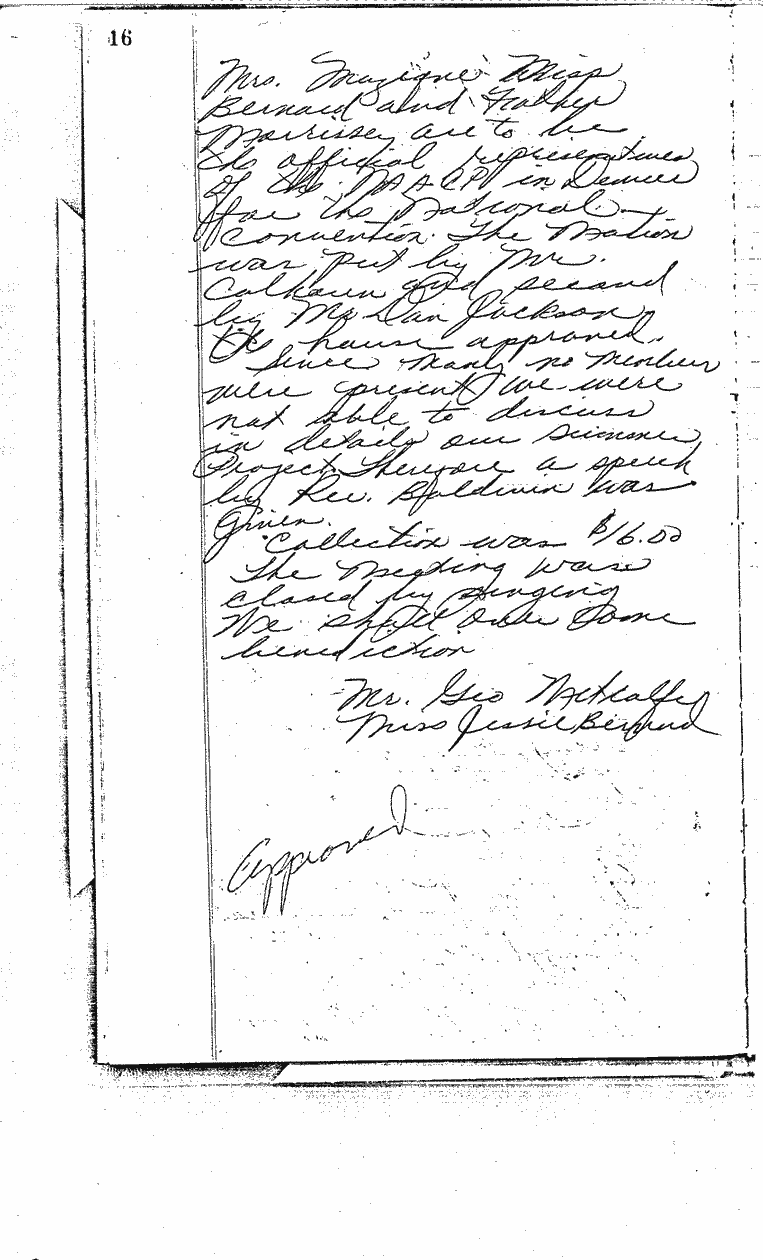 16
Mrs. Mazique Miss
Bernard and Father
Morrissey are to be
the official representives
of the NAACP in Denver
for the National
Convention. The Motion
was put by Mr.
Calhoun and second
by Mr Dan Jackson
The house approved.
Since many no members
were present we were
not able to discuss
in details our Summer
Project. Therefore a speech
by Rev. Baldwin was
Given.
Collection was $16.00
The Meeting was
closed by singing
We shall over Come
benediction
Mr. Geo Metcalfe
Miss Jessie Bernard
Approved